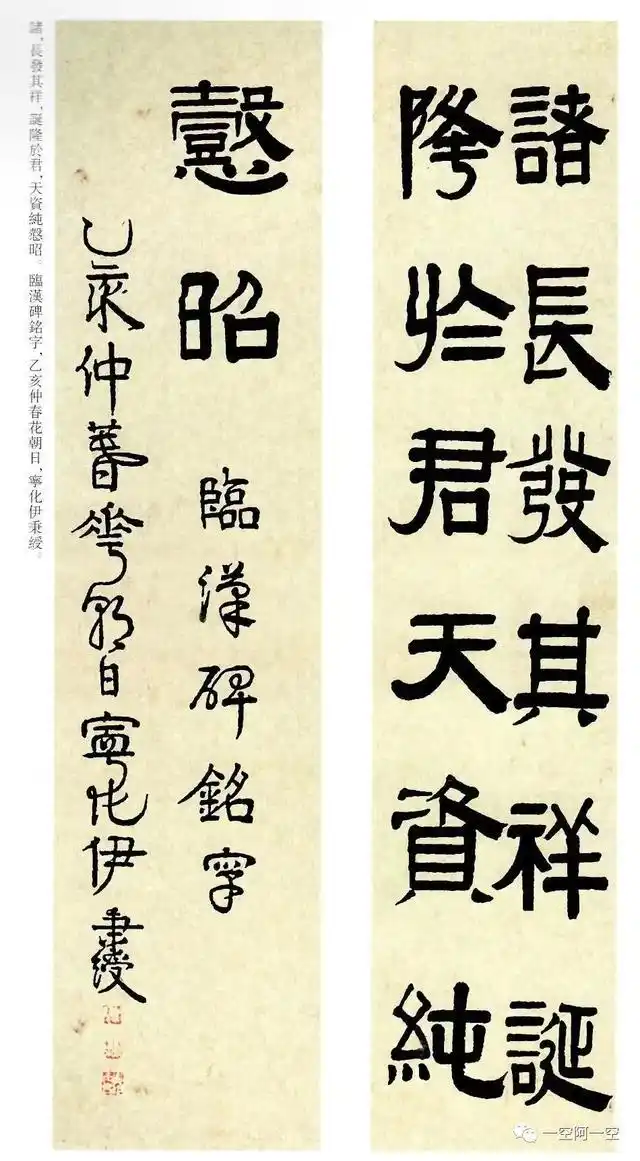 諸長發其祥誕
隆於君天資純
懿昭
臨漢碑銘字
乙亥仲春花朝日寧化伊秉綬
諸，長發其祥，誕隆於君，天資純懿昭。臨漢碑銘字，乙亥仲春花朝日，寧化伊秉綬。
一空阿一空